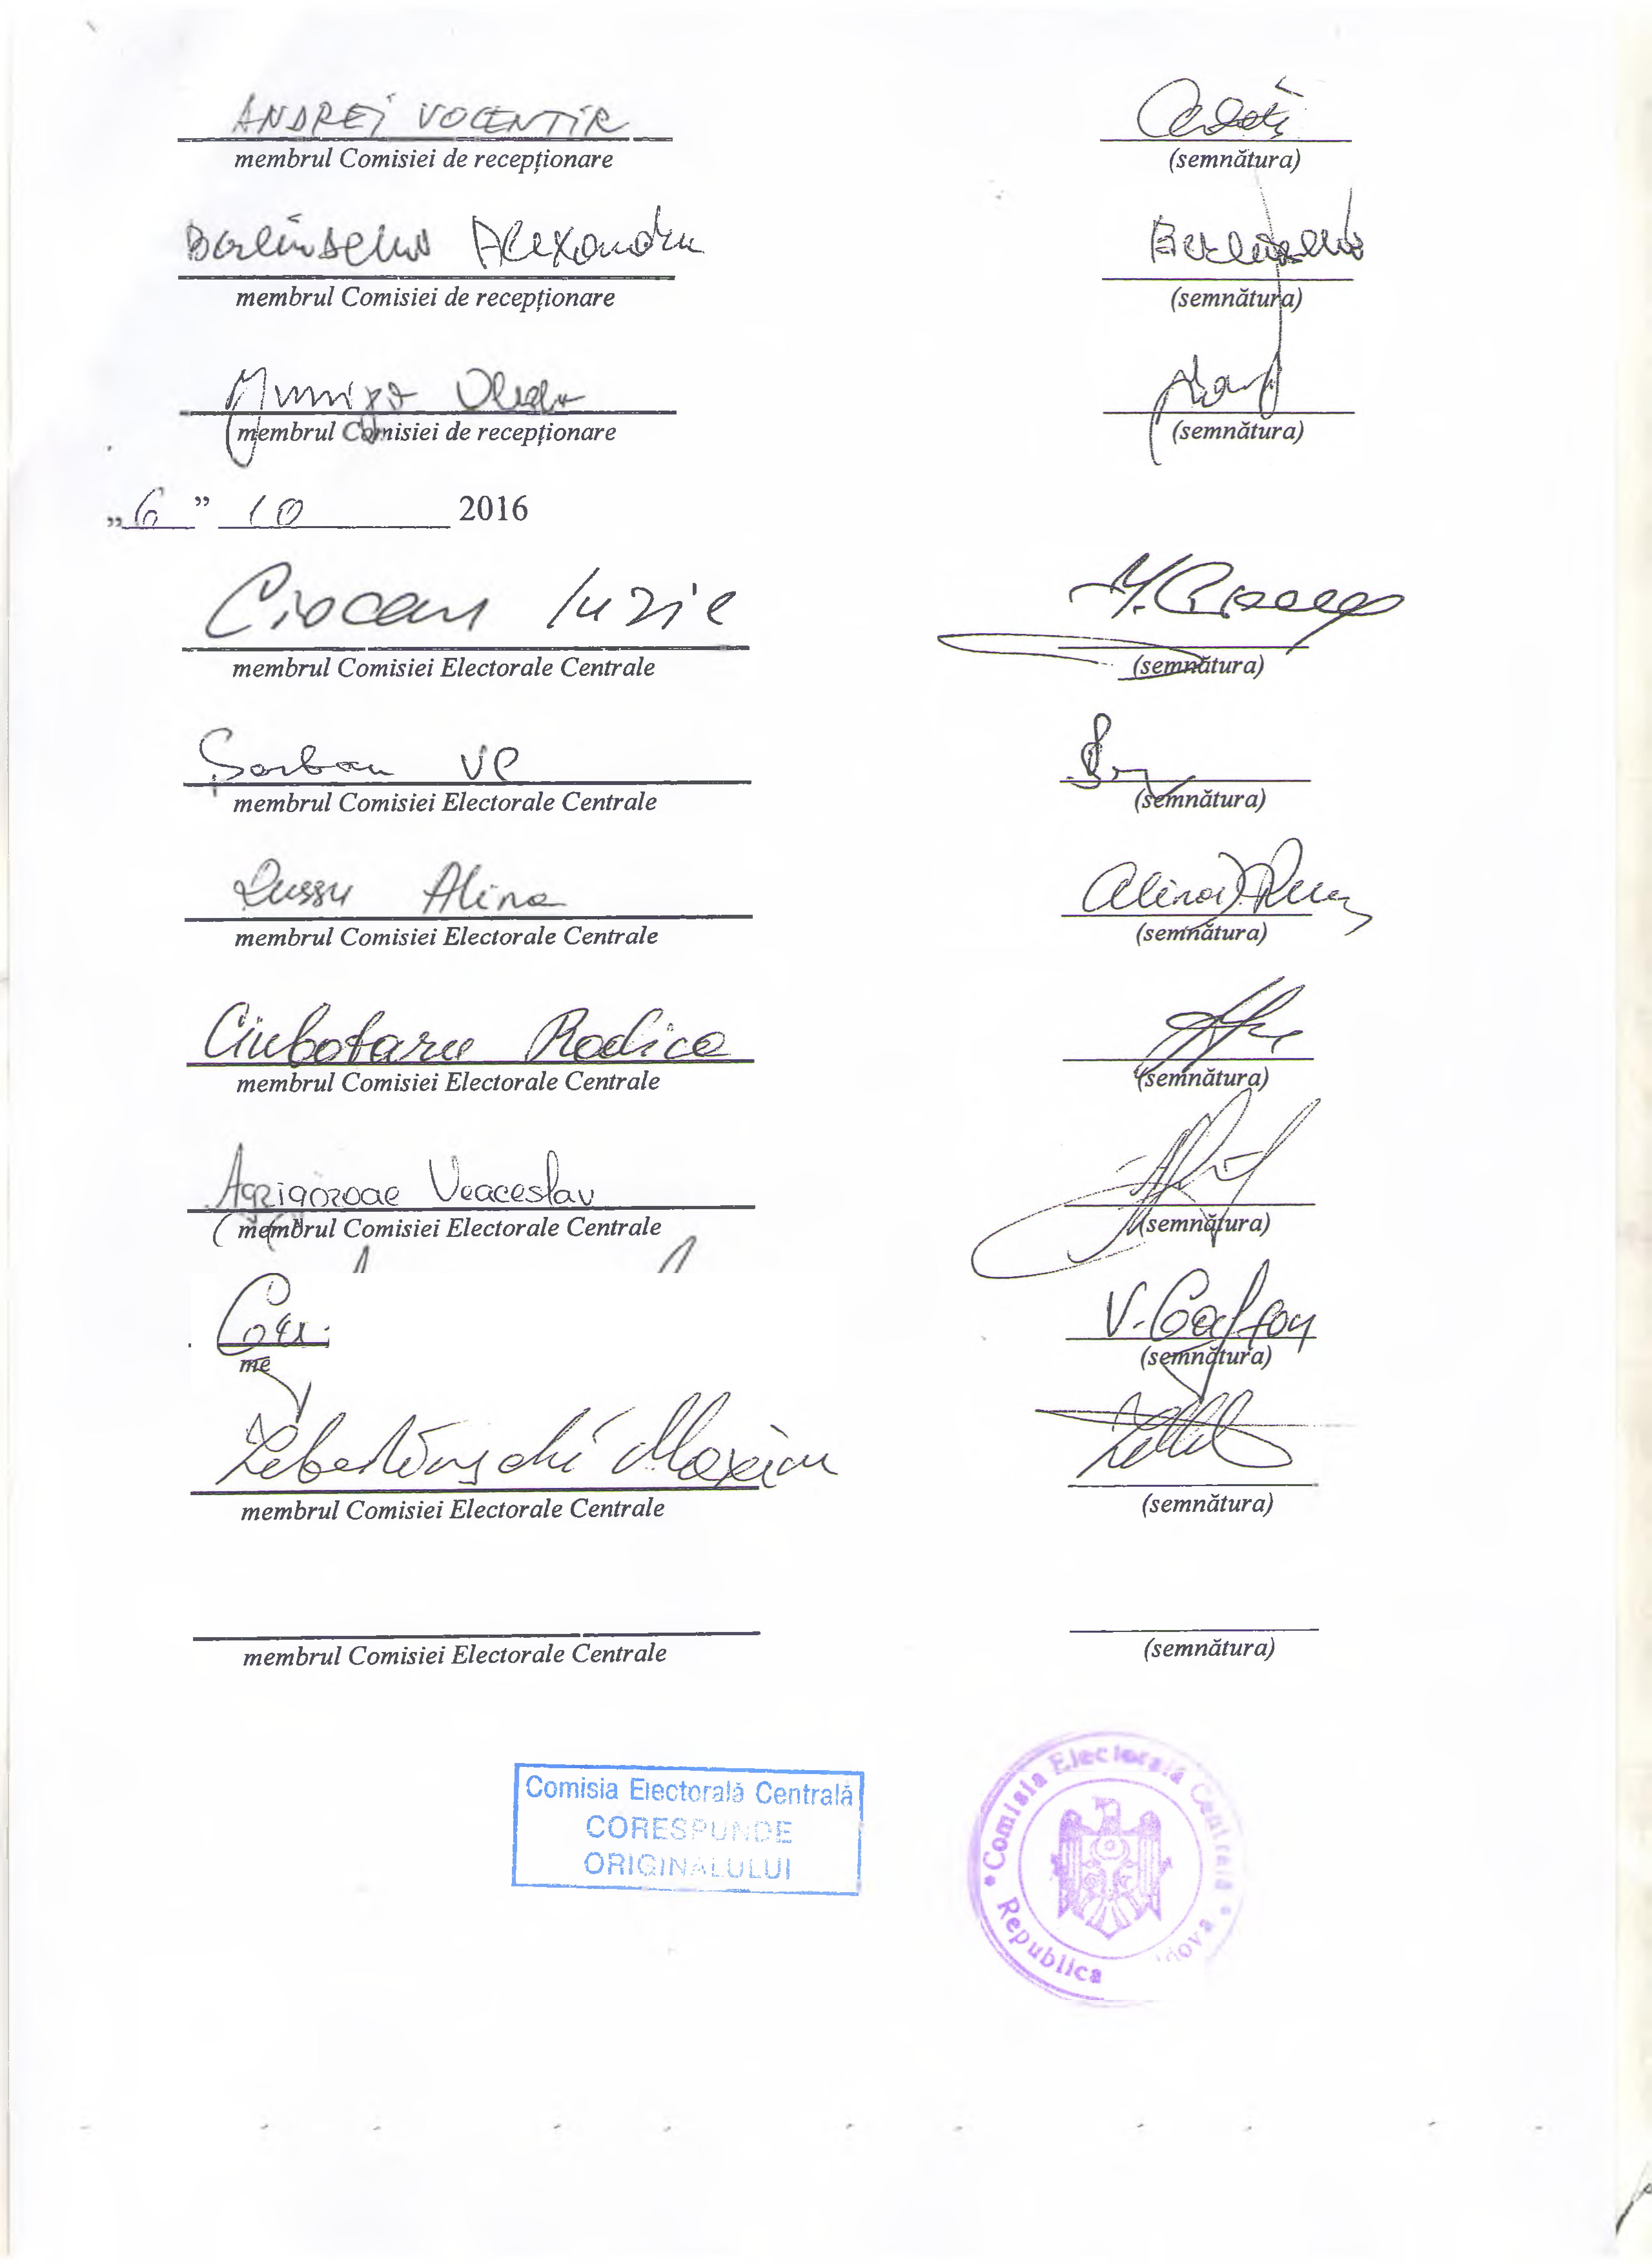 ANDREI VOCENTIR
membrul Comisiei de recepționare (semnătura)
Alexandru
membrul Comisiei de recepționare (semnătura)
membrul Comisiei de recepționare (semnătura)
„6” 10 2016
Ciocan Iurie
membrul Comisiei Electorale Centrale (semnătura)
Șarban VP
membrul Comisiei Electorale Centrale (semnătura)
Russu Alina
membrul Comisiei Electorale Centrale (semnătura)
Ciubotaru Rodica
membrul Comisiei Electorale Centrale (semnătura)
Agrigoroae Veaceslav
membrul Comisiei Electorale Centrale (semnătura)
V. Gafton
me (semnătura)
Maxim
membrul Comisiei Electorale Centrale (semnătura)
membrul Comisiei Electorale Centrale (semnătura)
Comisia Electorală Centrală
CORESPUNDE
ORIGINALULUI
Comisia Electorală Centrală
Republica dova